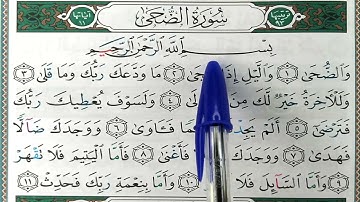 سُورَةُ الضُّحَىٰ
بِسْمِ اللَّهِ الرَّحْمَٰنِ الرَّحِيمِ
وَالضُّحَىٰ ١ وَالَّيْلِ إِذَا ٢ مَا وَدَّعَكَ رَبُّكَ وَمَا قَلَىٰ ٣
وَلَلْآخِرَةُ خَيْرٌ لَّكَ مِنَ ٤ وَلَسَوْفَ يُعْطِيكَ رَبُّكَ
فَتَرْضَىٰ ٥ أَلَمْ يَجِدْكَ فَـَٔاوَىٰ ٦ وَوَجَدَكَ ضَالًّا
فَهَدَىٰ ٧ وَوَجَدَكَ فَأَغْنَىٰ ٨ فَأَمَّا الْيَتِيمَ فَلَا تَقْهَرْ
٩ وَأَمَّا السَّآئِلَ فَلَا ١٠ وَأَمَّا بِنِعْمَةِ رَبِّكَ فَحَدِّثْ ١١